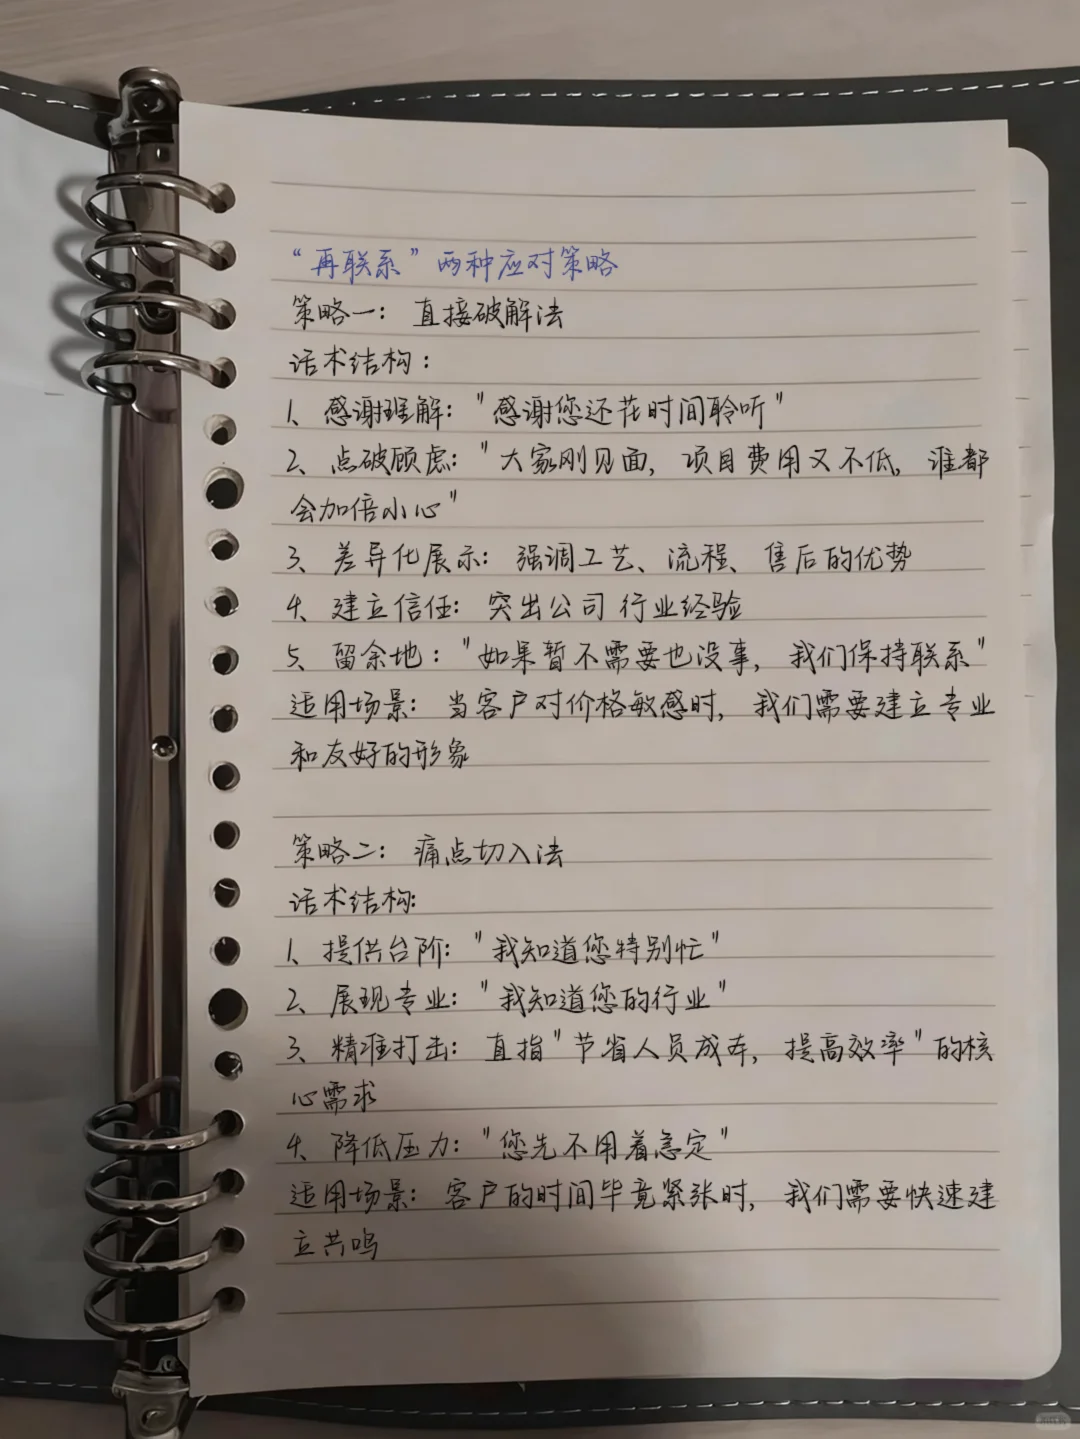 “再联系”两种应对策略
策略一：直接破解法
话术结构：
1、感谢理解："感谢您还花时间聆听"
2、点破顾虑："大家刚见面，项目费用又不低，谁都
会加倍小心"
3、差异化展示：强调工艺、流程、售后的优势
4、建立信任：突出公司行业经验
5、留余地："如果暂不需要也没事，我们保持联系"
适用场景：当客户对价格敏感时，我们需要建立专业
和友好的形象
策略二：痛点切入法
话术结构：
1、提供台阶："我知道您特别忙"
2、展现专业："我知道您的行业"
3、精准打击：直指"节省人员成本，提高效率"的核
心需求
4、降低压力："您先不用着急定"
适用场景：客户的时间毕竟紧张时，我们需要快速建
立共鸣